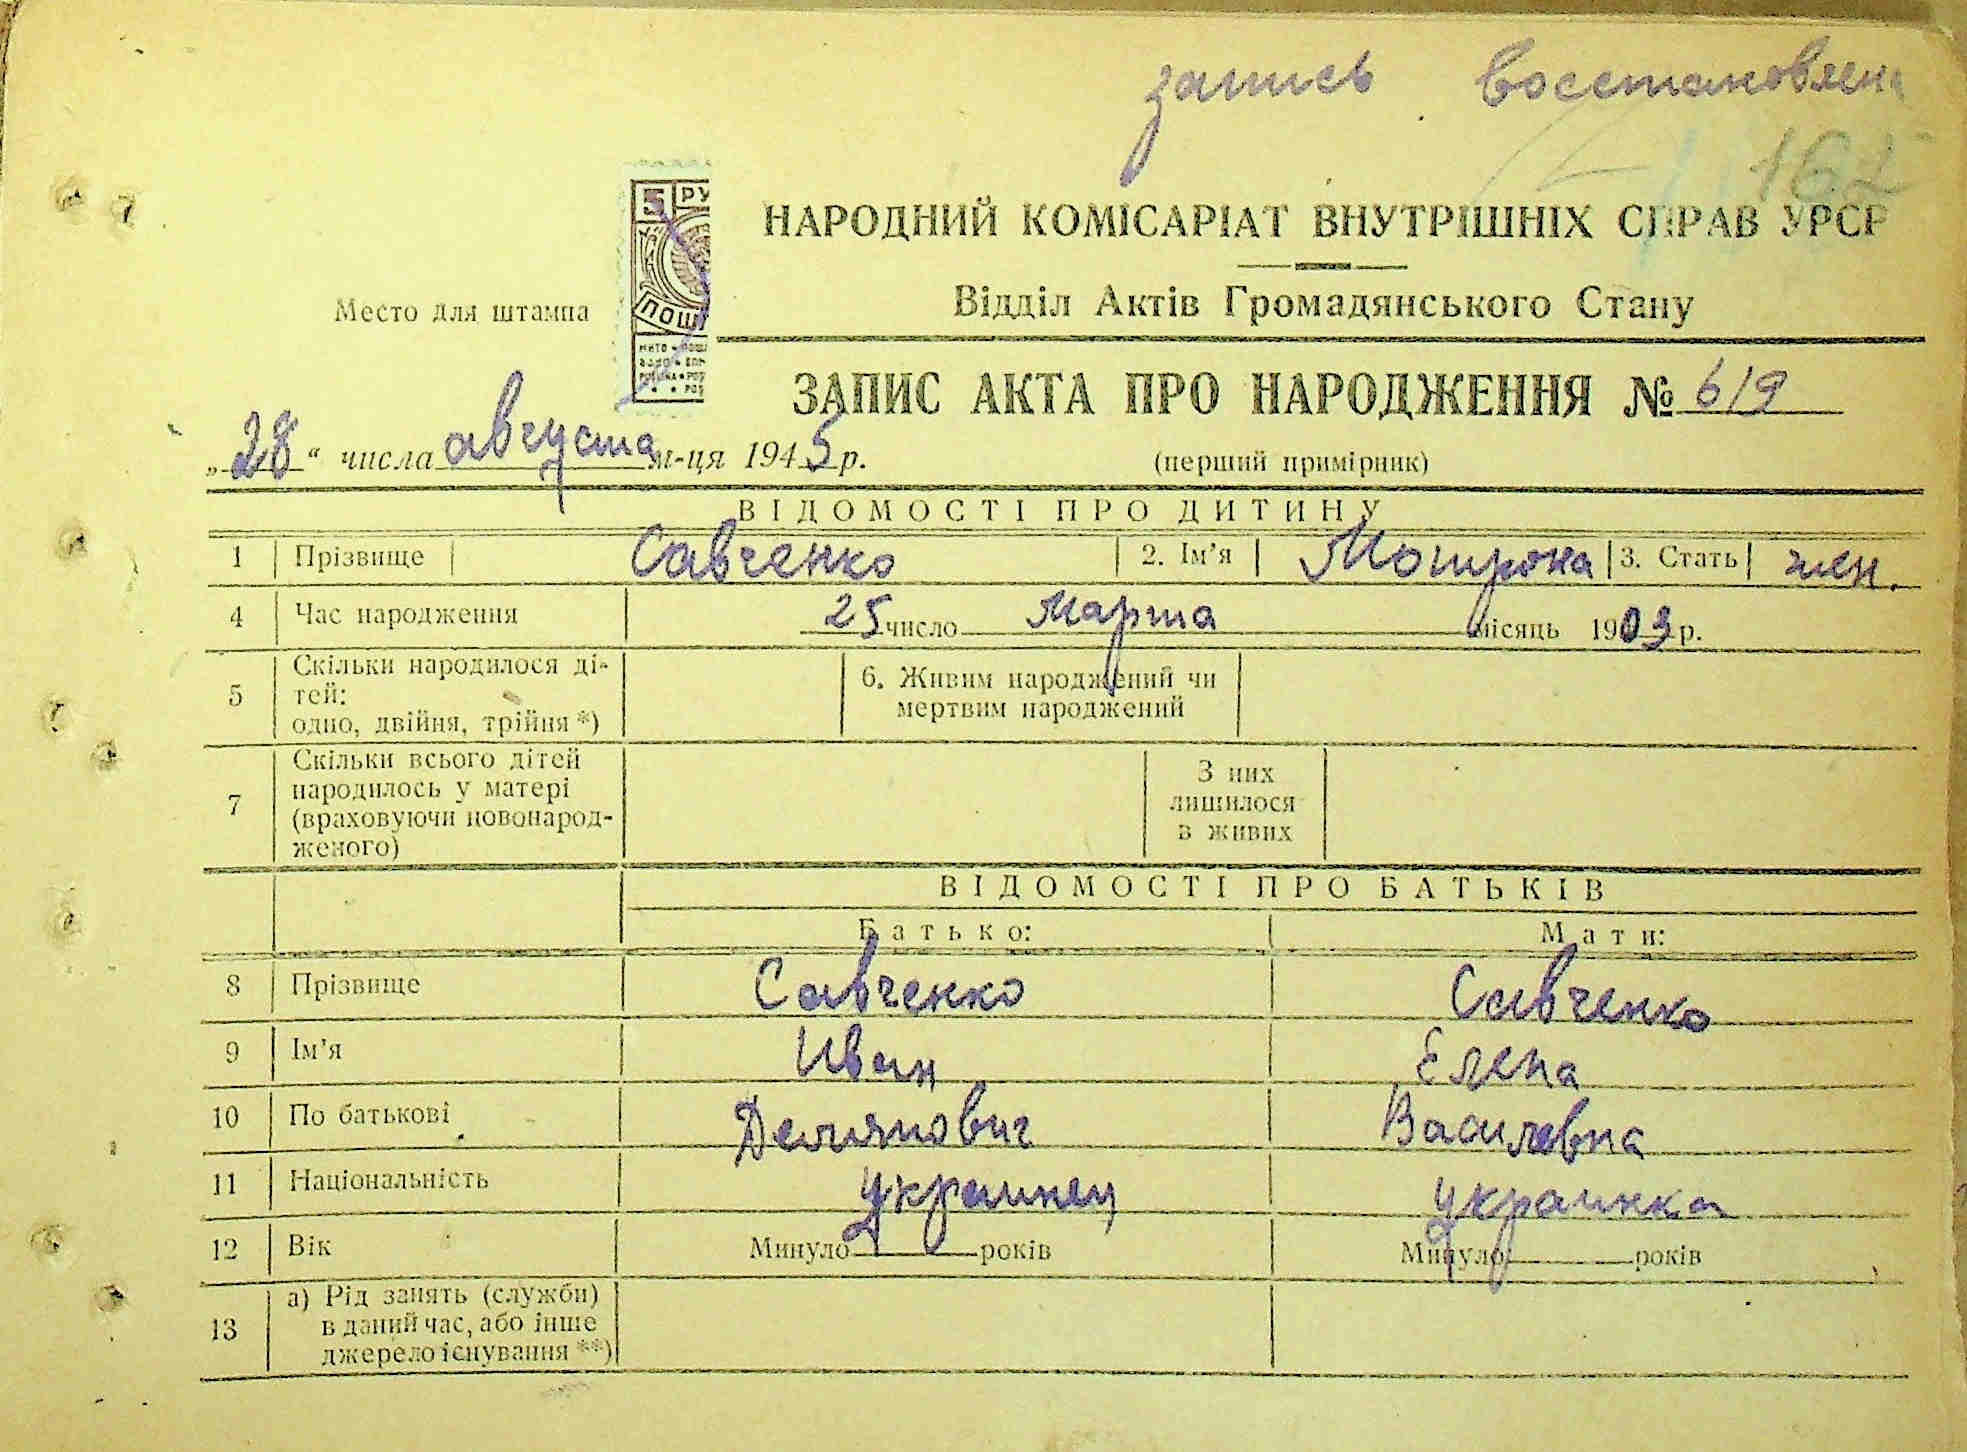 запись восстановлена
162
НАРОДНИЙ КОМІСАРІАТ ВНУТРІШНІХ СПРАВ УРСР
Відділ Актів Громадянського Стану
Место для штампа
5 РУ
ПОШ
ЗАПИС АКТА ПРО НАРОДЖЕННЯ № 619
„28“ числа августа м-ця 1945 р.
(перший примірник)
ВІДОМОСТІ ПРО ДИТИНУ
1 Прізвище Савченко 2. Ім'я Мотрона 3. Стать жен.
4 Час народження 25 число Марта місяць 1903 р.
5 Скільки народилося ді-
тей:
одно, двійня, трійня *)
6. Живим народжений чи
мертвим народжений
7 Скільки всього дітей
народилось у матері
(враховуючи новонарод-
женого)
З них
лишилося
в живих
ВІДОМОСТІ ПРО БАТЬКІВ
Батько: Мати:
8 Прізвище Савченко Савченко
9 Ім'я Иван Елена
10 По батькові Демянович Василевна
11 Національність украинец украинка
12 Вік Минуло років Минуло років
13 а) Рід занять (служби)
в даний час, або інше
джерело існування **)